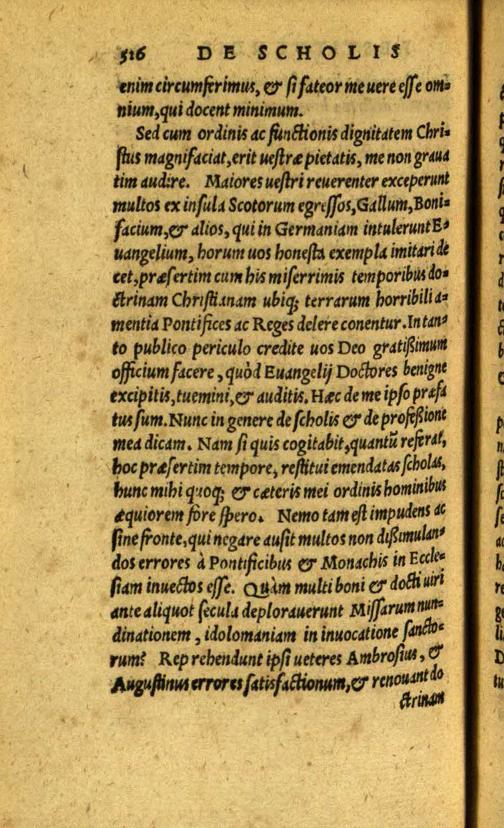 526 DE SCHOLIS
enim circumferimus, & si fateor me uere esse om=
nium, qui docent minimum.
Sed cum ordinis ac functionis dignitatem Chri=
stus magnifaciat, erit uestræ pietatis, me non graua
tim audire. Maiores uestri reuerenter exceperunt
multos ex insula Scotorum egressos, Gallum, Boni=
facium, & alios, qui in Germaniam intulerunt E=
uangelium, horum uos honesta exempla imitari de
cet, præsertim cum his miserrimis temporibus do=
ctrinam Christianam ubiq; terrarum horribili a=
mentia Pontifices ac Reges delere conentur. In tan=
to publico periculo credite uos Deo gratißimum
officium facere, quòd Euangelij Doctores benigne
excipitis, tuemini, & auditis. Hæc de me ipso præfa
tus sum. Nunc in genere de scholis & de profeßione
mea dicam. Nam si quis cogitabit, quantũ referat,
hoc præsertim tempore, restitui emendatas scholas,
hunc mihi quoq; & cæteris mei ordinis hominibus
æquiorem fore spero. Nemo tam est impudens ac
sine fronte, qui negare ausit multos non dißimulan=
dos errores à Pontificibus & Monachis in Eccle=
siam inuectos esse. Quàm multi boni & docti uiri
ante aliquot secula deplorauerunt Missarum nun=
dinationem, idolomaniam in inuocatione sancto=
rum? Reprehendunt ipsi ueteres Ambrosius, &
Augustinus errores satisfactionum, & renouant do
ctrinam